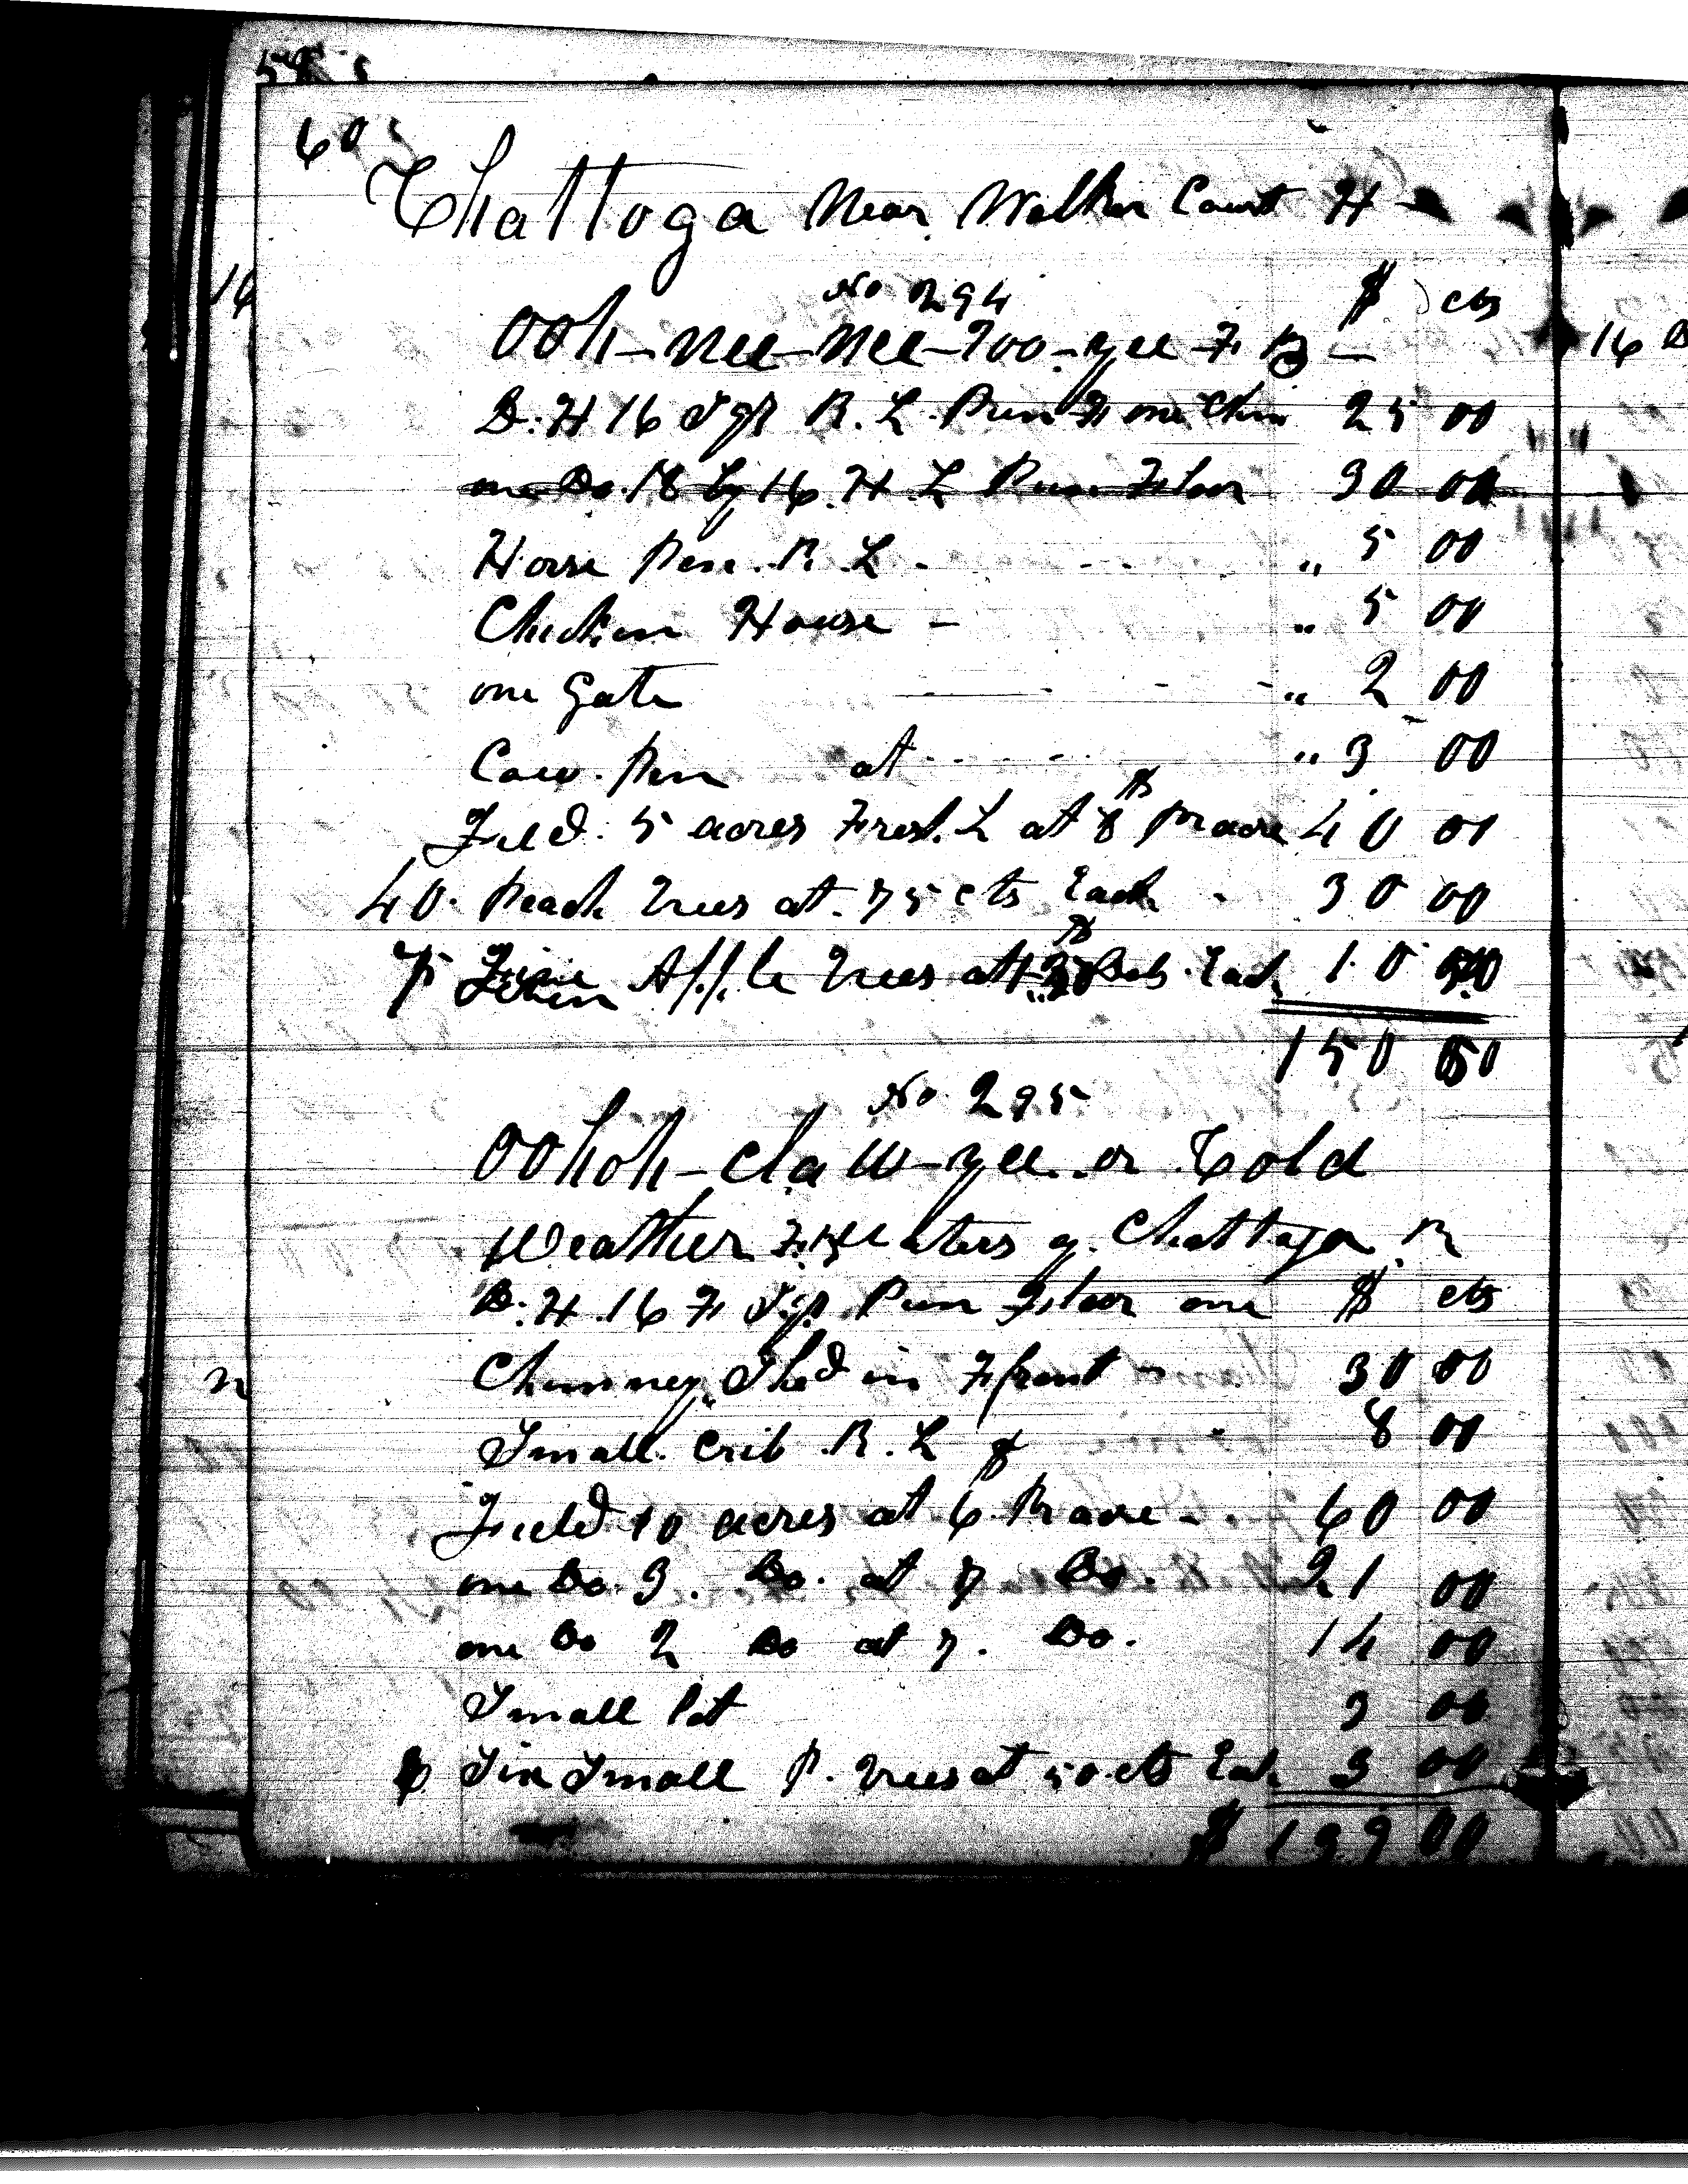 60
Chattoga Near Walker Court H
No 294
$ cts
Ooh-nee-nee-Too-yee F B
D. H 16 Sqr R. L. Pun F one Chim 25 00
one Do. 18 by 16. H L Pun Floor 30 00
Horse Pen. R L - " 5 00
Chicken House - " 5 00
one Gate " 2 00
Cow. Pen at " 3 00
Field. 5 acres Frest. L at 8 $ Pr acre 40 00
40. Peach Trees at. 75 cts Each 30 00
7 Apple Trees at Each 10 50
150 50
No 295
Oohoh-claw-yee. or Cold
Weather Waters of. Chattoga R
D. H. 16 F Sqr. Pun Floor one $ cts
Chimney. Shed in Front 30 00
Small. Crib. R. L 8 00
Field 10 acres at 6 $ Pr acre - 60 00
one Do. 3. Do. at 7 Do. 21 00
one Do 2 Do at 7. Do. 14 00
Small lot 3 00
6 Six Small P. Trees at 50. cts Each 3 00
$ 139 00